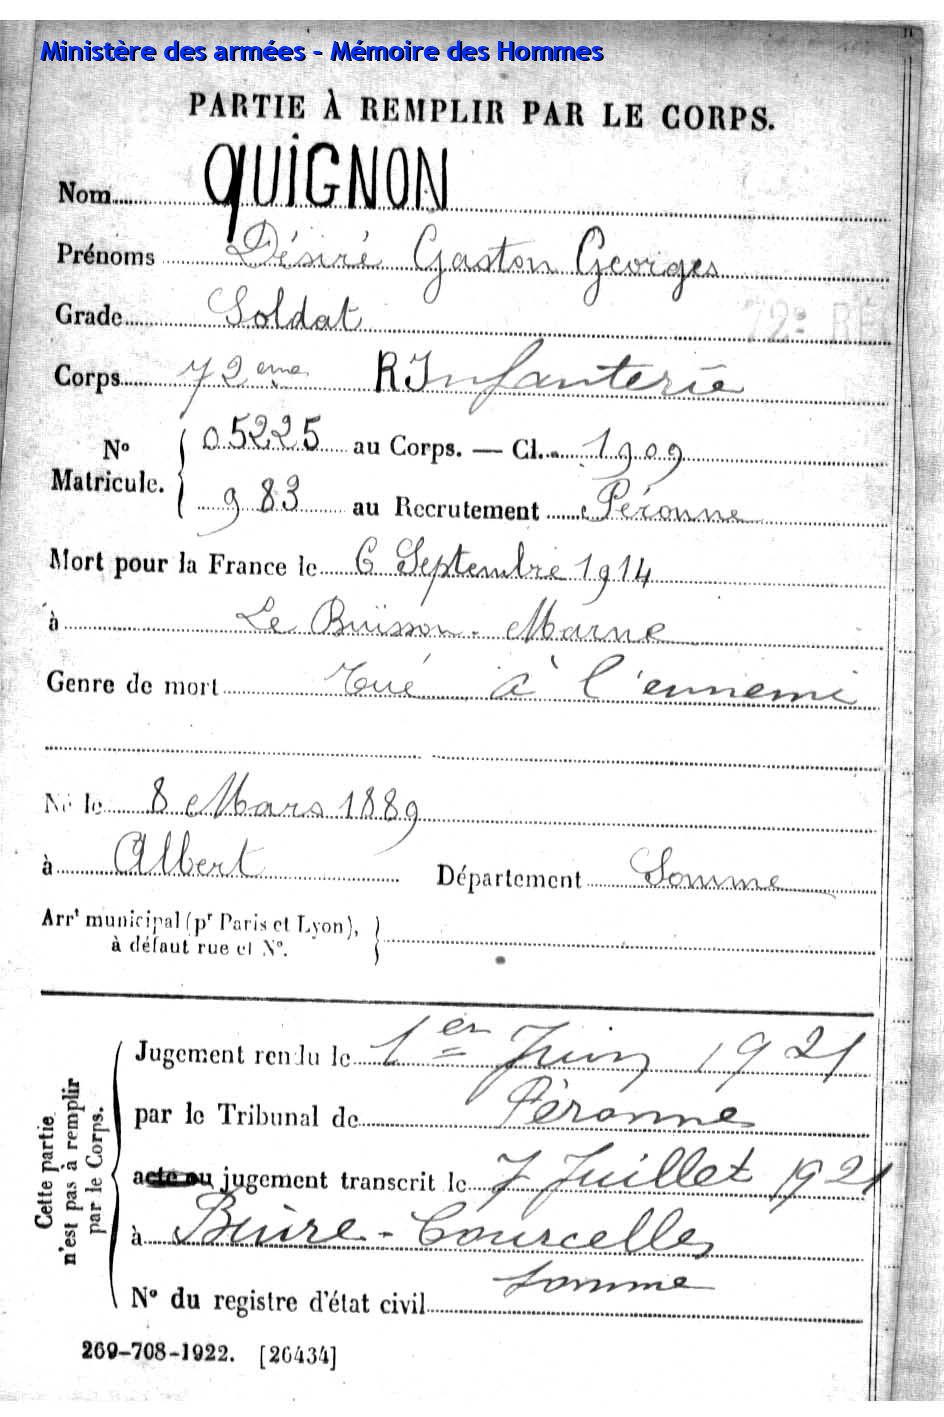 Ministère des armées - Mémoire des Hommes
PARTIE À REMPLIR PAR LE CORPS.
Nom QUIGNON
Prénoms Désiré Gaston Georges
Grade Soldat
72e RÉ
Corps 72eme R Infanterie
N° Matricule. 05225 au Corps. — Cl. 1909
983 au Recrutement Péronne
Mort pour la France le 6 Septembre 1914
à Le Buisson - Marne
Genre de mort Tué à l'ennemi
Né le 8 Mars 1889
à Albert Département Somme
Arrt municipal (pr Paris et Lyon),
à défaut rue et N°.
Cette partie n'est pas à remplir par le Corps.
Jugement rendu le 1er Juin 1921
par le Tribunal de Péronne
acte ou jugement transcrit le 7 Juillet 1921
à Buire-Courcelles
Somme
N° du registre d'état civil
269-708-1922. [26434]